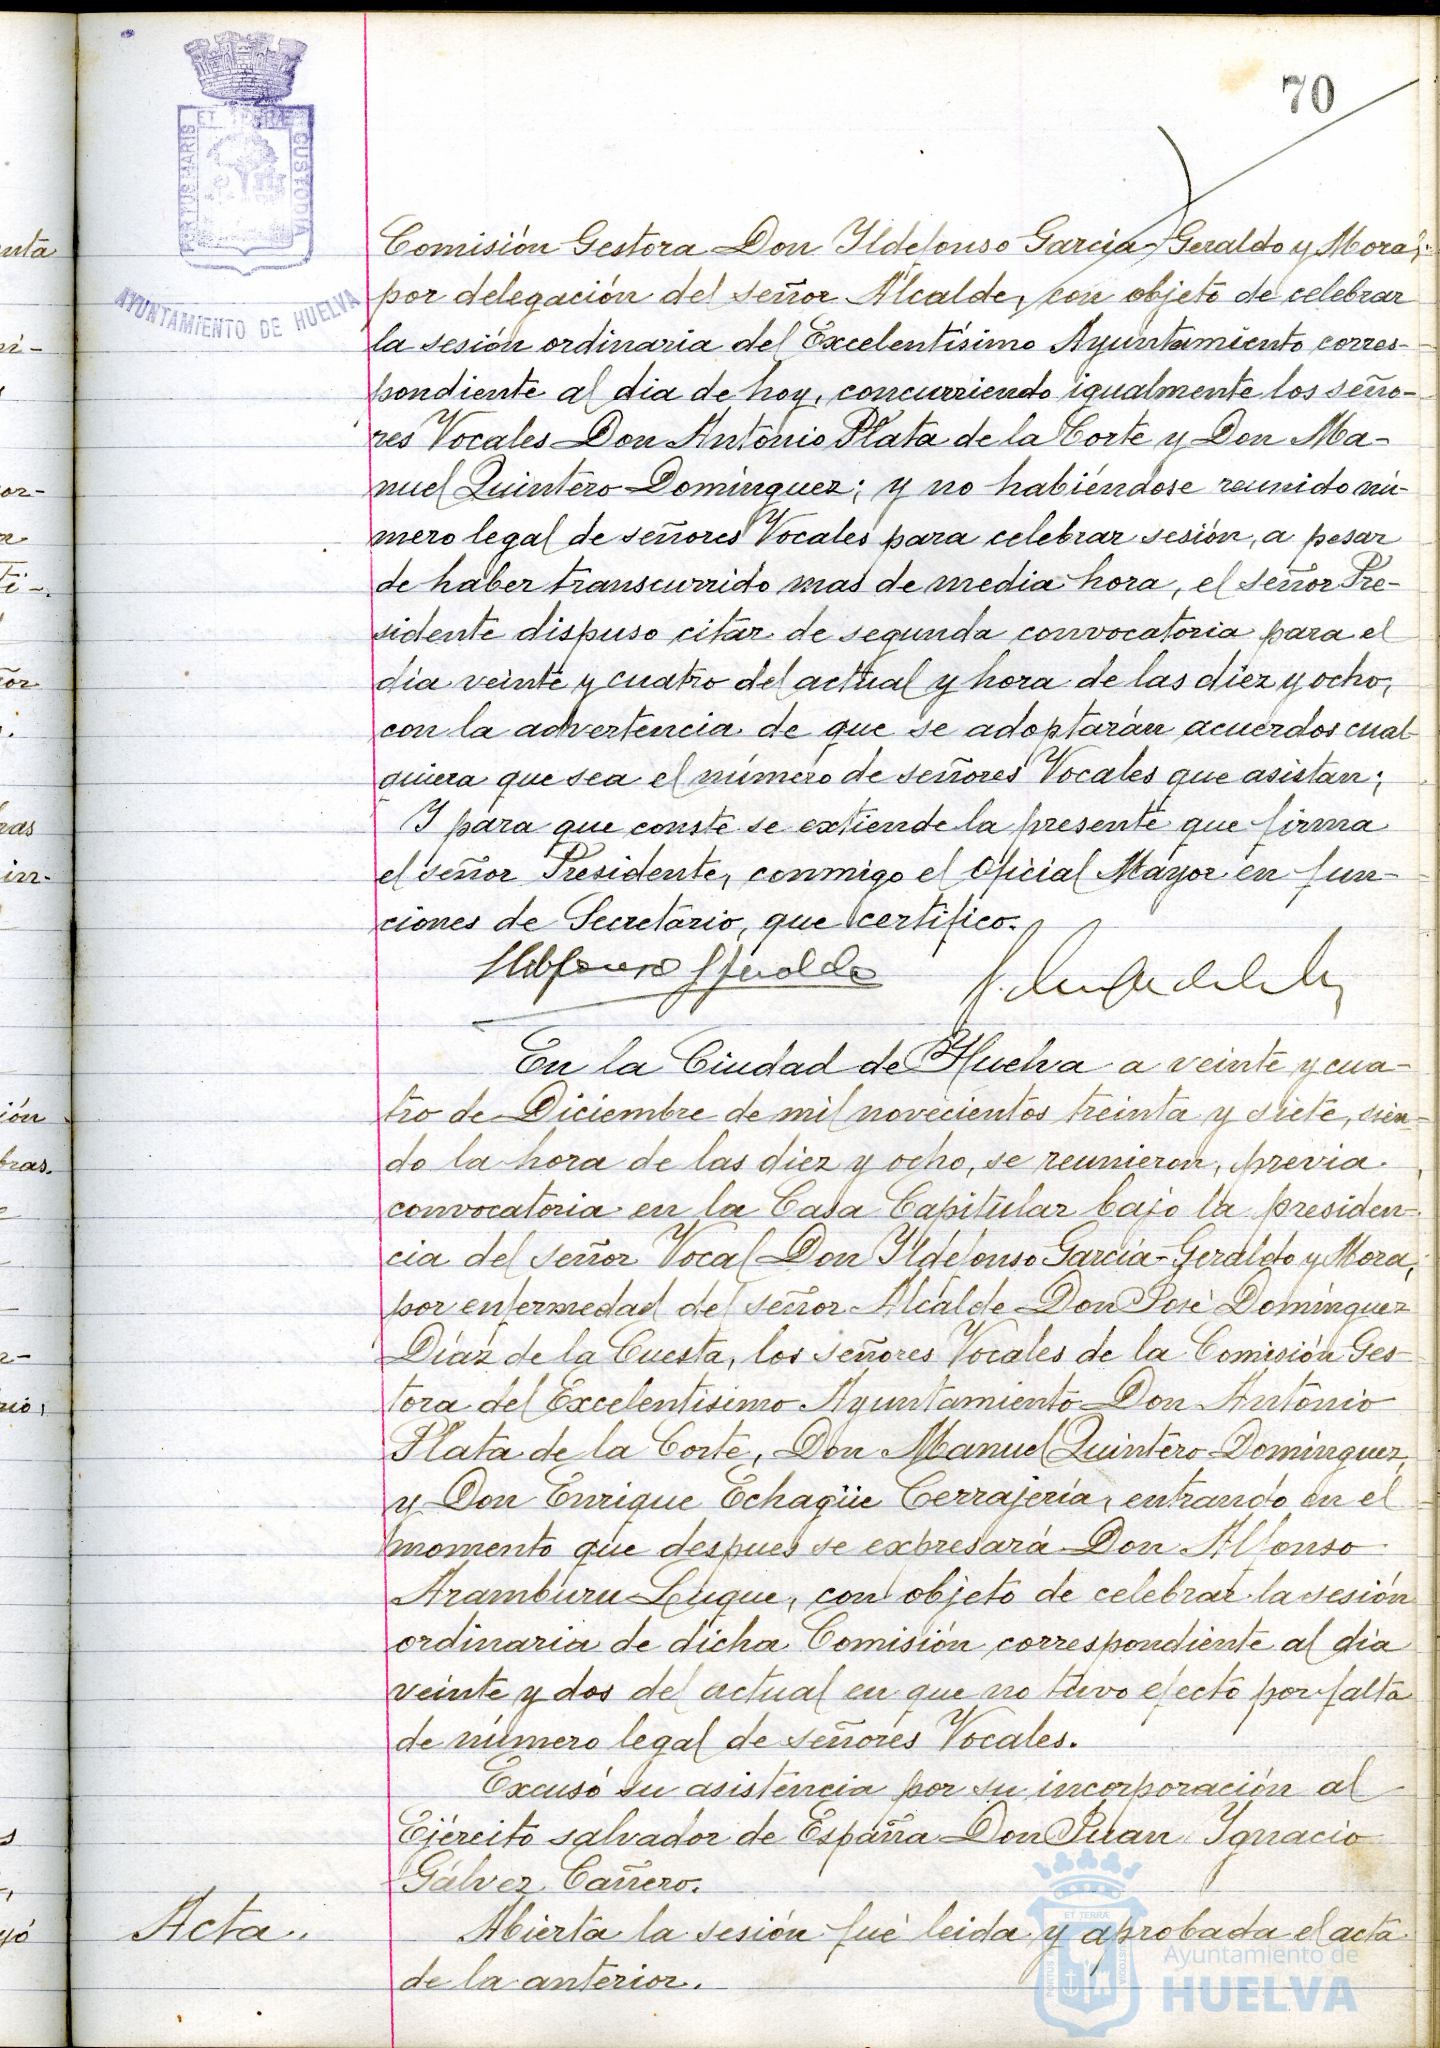 70
PORTUS MARIS ET TERRÆ CUSTODIA
AYUNTAMIENTO DE HUELVA
Comisión Gestora Don Yldefonso García-Geraldo y Mora,
por delegación del señor Alcalde, con objeto de celebrar
la sesión ordinaria del Excelentísimo Ayuntamiento corres-
pondiente al dia de hoy, concurriendo igualmente los seño-
res Vocales Don Antonio Plata de la Corte y Don Ma-
nuel Quintero Domínguez; y no habiéndose reunido nú-
mero legal de señores Vocales para celebrar sesión, a pesar
de haber transcurrido mas de media hora, el señor Pre-
sidente dispuso citar de segunda convocatoria para el
día veinte y cuatro del actual y hora de las diez y ocho,
con la advertencia de que se adoptarán acuerdos cual-
quiera que sea el número de señores Vocales que asistan;
Y para que conste se extiende la presente que firma
el señor Presidente, conmigo el Oficial Mayor en fun-
ciones de Secretario, que certifico.
Ildefonso Geraldo
En la Ciudad de Huelva a veinte y cua-
tro de Diciembre de mil novecientos treinta y siete, sien-
do la hora de las diez y ocho, se reunieron, previa
convocatoria en la Casa Capitular bajo la presiden-
cia del señor Vocal Don Yldefonso García-Geraldo y Mora,
por enfermedad del señor Alcalde Don José Domínguez
Díaz de la Cuesta, los señores Vocales de la Comisión Ges-
tora del Excelentisimo Ayuntamiento Don Antonio
Plata de la Corte, Don Manuel Quintero Domínguez,
y Don Enrique Echagüe Cerrajería, entrando en el
momento que despues se expresará Don Alfonso
Aramburu Luque, con objeto de celebrar la sesión
ordinaria de dicha Comisión correspondiente al día
veinte y dos del actual en que no tuvo efecto por falta
de número legal de señores Vocales.
Excusó su asistencia por su incorporación al
Ejército salvador de España Don Juan Ygnacio
Gálvez Cañero.
Acta. Abierta la sesión fué leida y aprobada el acta
de la anterior.
Ayuntamiento de
HUELVA